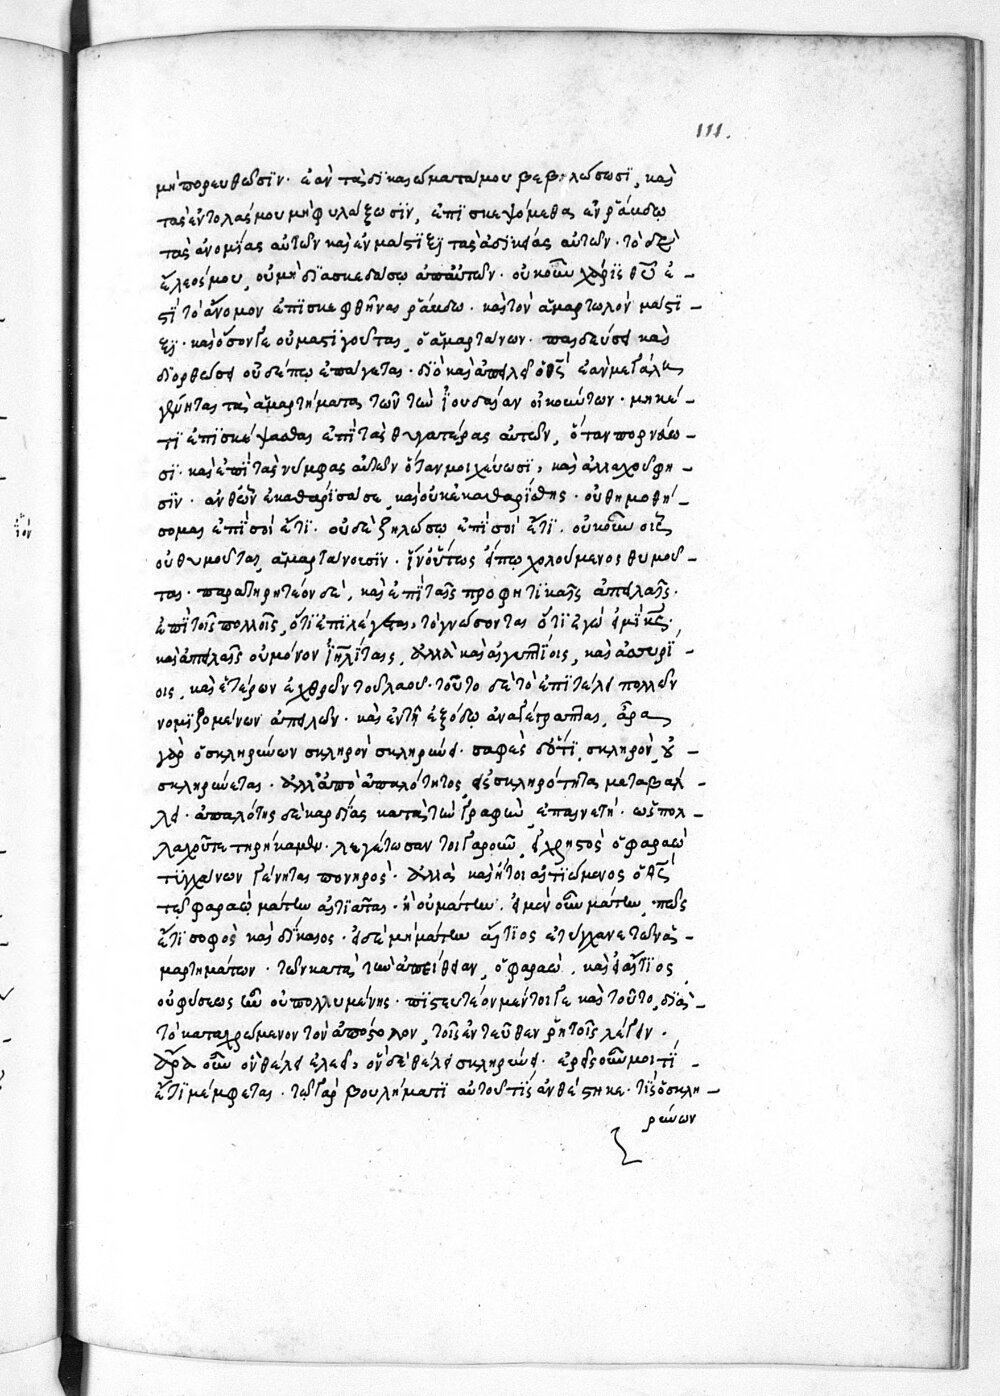 111.
μὴ πορευθῶσϊν· ἐὰν τὰ δϊκαιώματά μου βεβηλώσωσϊ, καὶ
τὰς ἐντολάς μου μὴ φυλάξωσϊν, ἐπϊσκέψομαι ἐν ῥάβδω
τὰς ἀνομϊας αὐτῶν καὶ ἐν μάστϊξϊ τὰς ἀδϊκίας αὐτῶν· τὸ δὲ
ἔλεός μου, οὐ μὴ δϊασκεδάσω ἀπ' αὐτῶν· οὐκοῦν χάρϊς θῦ ἐ-
στϊ τὸ ἄνομον ἐπϊσκεφθῆναι ῥάβδω· καὶ τὸν ἁμαρτωλὸν μάστϊ-
ξϊ· καὶ ὅσον γε οὐ μαστϊγοῦται, ὁ ἁμαρτάνων· παιδεύσει καὶ
δϊορθώσει οὐδέπω ἐπάγεται· δϊὸ καὶ ἀπειλεῖ ὁ θς, ἐὰν μεγάλα
γένηται τὰ ἁμαρτήματα τῶν τὴν ϊουδαίαν οἰκούντων· μηκέ-
τϊ ἐπϊσκέψασθαι ἐπϊ τὰς θυγατέρας αὐτῶν, ὅταν πορνεύω-
σϊ· καὶ ἐπϊ τὰς νύμφας αὐτῶν ὅταν μοιχεύωσϊ, καὶ ἀλλαχοῦ φη-
σϊν· ἀνθ' ὧν ἐκαθάρϊσά σε, καὶ οὐκ ἐκαθαρϊσθης· οὐ θυμωθή-
σομαι ἐπϊ σοὶ ἔτϊ· οὐδὲ ζηλώσω ἐπϊ σοὶ ἔτϊ· οὐκοῦν οἷς
οὐ θυμοῦται, ἁμαρτάνουσϊν· ϊν' οὕτως εἴπω χολούμενος θυμοῦ-
ται· παρατηρητέον δὲ, καὶ ἐπϊ ταῖς προφητϊκαῖς ἀπειλαῖς·
ἐπϊ τοῖς πολλοῖς, ὅτϊ ἐπϊλέγεται, τὸ γνώσονται ὅτϊ ἐγώ εἰμϊ κς·
καὶ ἀπειλαῖς οὐ μόνον ϊηλϊταις, ἀλλὰ καὶ αἰγυπτϊοις, καὶ ἀσσυρϊ-
οις, καὶ ἑτέρων ἐχθρῶν τοῦ λαοῦ· τοῦτο δὲ τὸ ἐπϊ τέλει πολλῶν
νομϊζομένων ἀπειλῶν· καὶ ἐν τῆ ἐξόδω ἀναγέγραπται, ἆρα
γὰρ ὁ σκληρύνων σκληρὸν σκληρύνει· σαφὲς δὲ ὅτϊ, σκληρὸν, οὐ
σκληρύνεται· ἀλλ' ἀπὸ ἁπαλότητος, εἰς σκληρότητα μεταβάλ-
λει· ἁπαλότης δὲ καρδϊας κατὰ τὴν γραφὴν, ἐπαινετή· ὡς πολ-
λαχοῦ τετηρήκαμεν· λεγέτωσαν τοιγαροῦν, εἰ χρηστὸς ὁ φαραὼ
τυγχάνων γένηται πονηρός· ἀλλὰ καὶ ἤτοι αἰτϊώμενος ὁ θς
τῷ φαραὼ μάτην αἰτϊᾶται· ἢ οὐ μάτην· εἰ μὲν οὖν μάτην, πῶς
ἔτϊ σοφὸς καὶ δϊκαιος· εἰ δὲ μὴ μάτην αἴτϊος ἐτύγχανε τῶν ἁ-
μαρτημάτων· τῶν κατὰ τὴν ἀπείθειαν, ὁ φαραὼ, καὶ εἰ αἴτϊος
οὐ φύσεως ἦν οὐπολλυμένης· πϊστευτέον μέντοιγε καὶ τοῦτο, δϊὰ-
τὸ καταχρώμενον τὸν ἀπόστολον, τοῖς ἐντεῦθεν ῥητοῖς λέγειν·
ἄρα οὖν ὃν θέλει ἐλεεῖ, ὃν δὲ θέλει σκληρύνει· ἐρεῖς οὖν μοι τί-
ἔτϊ μέμφεται· τῷ γὰρ βουλήματϊ αὐτοῦ τϊς ἀνθέστηκε· τϊς ὁ σκλη-
ρύνων